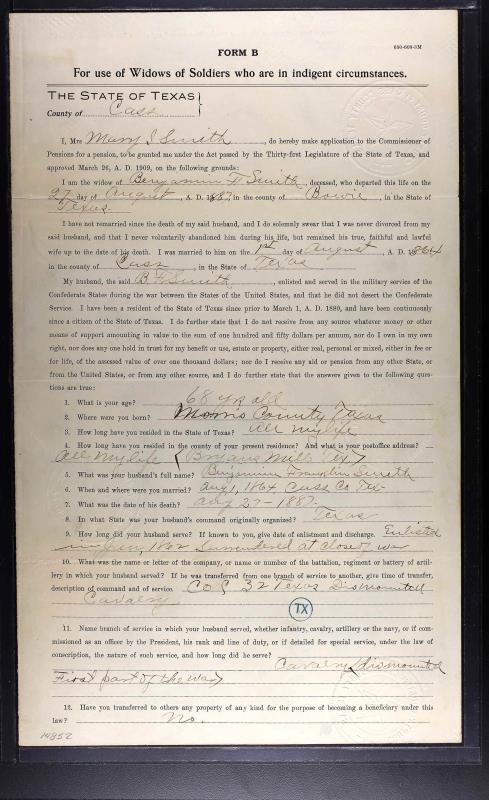 650-609-3M
FORM B
For use of Widows of Soldiers who are in indigent circumstances.
THE STATE OF TEXAS
County of Cass
I, Mrs Mary J Smith, do hereby make application to the Commissioner of
Pensions for a pension, to be granted me under the Act passed by the Thirty-first Legislature of the State of Texas, and
approved March 26, A. D. 1909, on the following grounds:
I am the widow of Benjamin F Smith, deceased, who departed this life on the
27 day of August, A. D. 1887, in the county of Bowie, in the State of
Texas.
I have not remarried since the death of my said husband, and I do solemnly swear that I was never divorced from my
said husband, and that I never voluntarily abandoned him during his life, but remained his true, faithful and lawful
wife up to the date of his death. I was married to him on the 1st day of August, A. D. 1864
in the county of Cass, in the State of Texas
My husband, the said B. F. Smith, enlisted and served in the military service of the
Confederate States during the war between the States of the United States, and that he did not desert the Confederate
Service. I have been a resident of the State of Texas since prior to March 1, A. D. 1880, and have been continuously
since a citizen of the State of Texas. I do further state that I do not receive from any source whatever money or other
means of support amounting in value to the sum of one hundred and fifty dollars per annum, nor do I own in my own
right, nor does any one hold in trust for my benefit or use, estate or property, either real, personal or mixed, either in fee or
for life, of the assessed value of over one thousand dollars; nor do I receive any aid or pension from any other State, or
from the United States, or from any other source, and I do further state that the answers given to the following ques-
tions are true:
1. What is your age? 68 yrs old
2. Where were you born? Morris County Texas
3. How long have you resided in the State of Texas? All my life
4. How long have you resided in the county of your present residence? And what is your postoffice address?
All my life (Bryans Mill Tex)
5. What was your husband's full name? Benjamin Franklin Smith
6. When and where were you married? Aug 1, 1864 Cass Co Tex
7. What was the date of his death? Aug 27 - 1887
8. In what State was your husband's command originally organized? Texas
9. How long did your husband serve? If known to you, give date of enlistment and discharge. Enlisted
in 1862 Surrendered at close of war
10. What was the name or letter of the company, or name or number of the battalion, regiment or battery of artil-
lery in which your husband served? If he was transferred from one branch of service to another, give time of transfer,
description of command and of service. Co 32 Texas Dismounted
Cavalry
TX
11. Name branch of service in which your husband served, whether infantry, cavalry, artillery or the navy, or if com-
missioned as an officer by the President, his rank and line of duty, or if detailed for special service, under the law of
conscription, the nature of such service, and how long did he serve? Cavalry (dismounted
First part of the war)
12. Have you transferred to others any property of any kind for the purpose of becoming a beneficiary under this
law? No.
14852